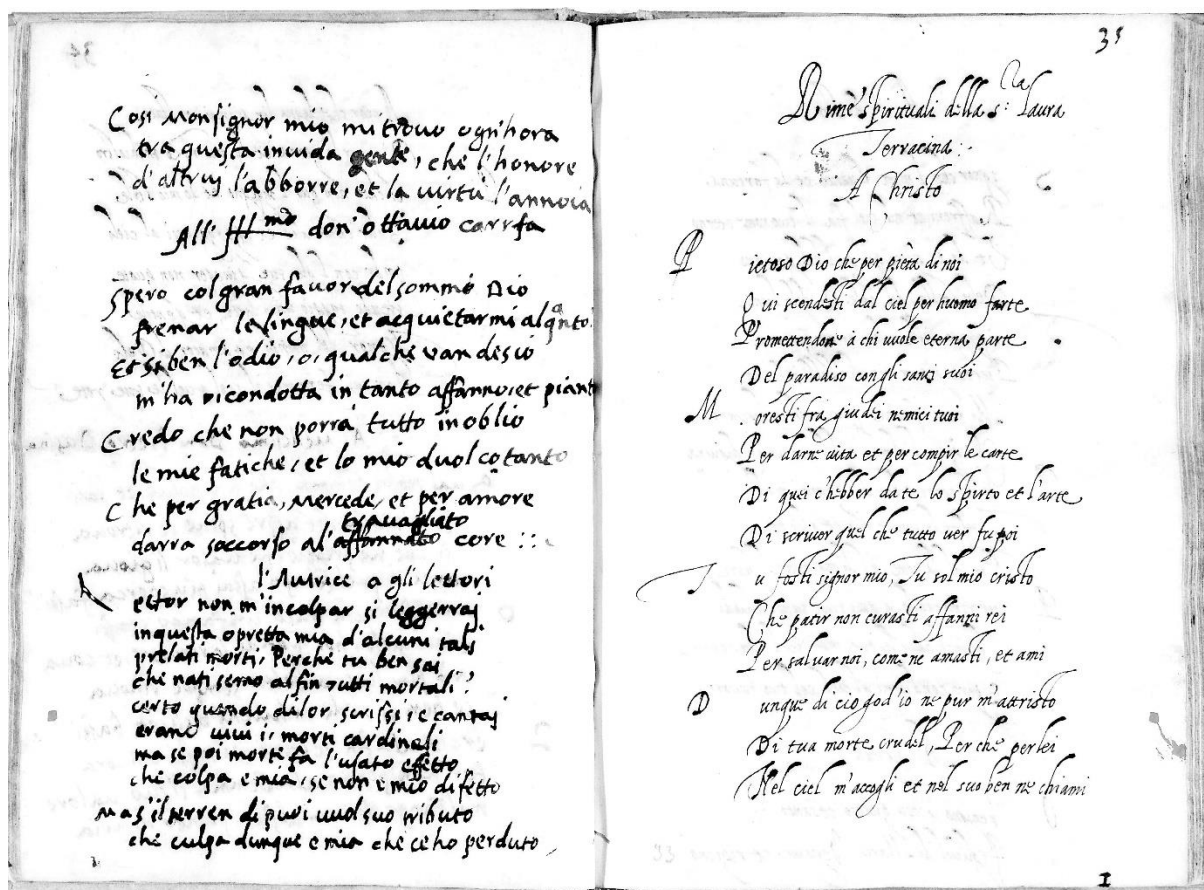 Cosi Monsignor mio mi trovo ogn'hora
tra questa invida gente, che l'honore
d'altrui l'abborre, et la virtù l'annoia
All' Ill.mo don' ottavio carrfa
Spero col gran favor del sommo Dio
frenar le lingue, et acquietarmi alqnto
Et si ben l'odio, o, qualche van desio
m'ha ricondotta in tanto affanno, et piant
Credo che non porrà tutto in oblio
le mie fatiche, et lo mio duol cotanto
Che per gratia, Mercede, et per amore
travagliato
darra soccorso al'affannato core ::
l'Autrice a gli lettori
ettor non m'incolpar si leggerraj
in questa opretta mia d'alcuni talj
prelati morti, Perche tu ben sai
che nati semo al fin tutti mortali?
certo quando di lor scrissi, e cantaj
erano vivi i, morti cardinali
ma se poi morte fa l'usato effetto
che colpa e mia, se non e mio difetto
Ma s'il terren di puoi vuol suo tributo
che culpa dunque e mia che ce ho perduto
35
Rime spirituali della s:ra Laura
Terracina:
A Christo
P ietoso Dio che per pietà di noi
Qui scendesti dal ciel per huomo farte
Promettendone à chi vuole eterna parte
Del paradiso con gli santi suoi
M oresti fra giudei nemici tuoi
Per darne vita et per compir le carte
Di quei c'hebber da te lo spirto et l'arte
Di scriver quel che tutto ver fu poi
T u fosti signor mio, Tu sol mio cristo
Che patir non curasti affanni rei
Per salvar noi, come ne amasti, et ami
D unque di cio god'io ne pur m'attristo
Di tua morte crudel, Per che per lei
Nel ciel m'accogli et nel suo ben ne chiami
I